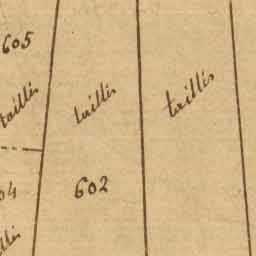 605
taillis
taillis
taillis
602
04
llis